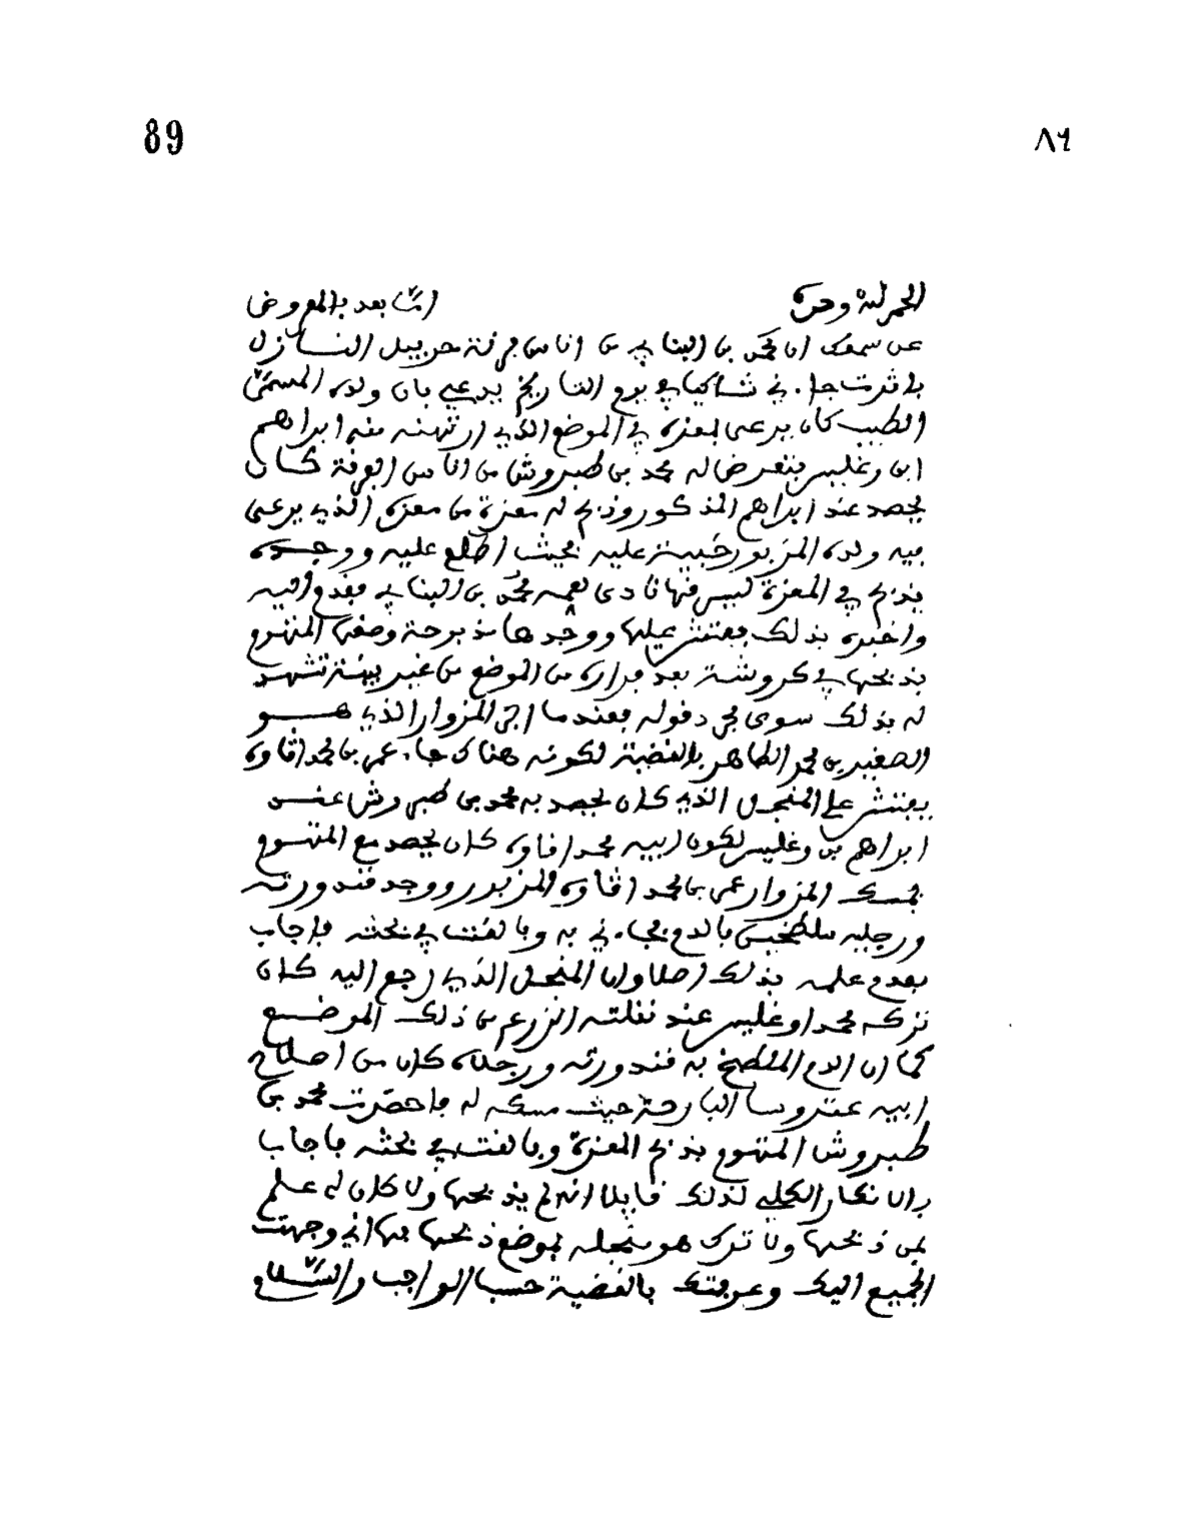 89 ٨٩
الحمد لله وحده امّا بعد فالمعروض
عن سمعك ان محمد بن البنا في من اناس فرقة حربيل النازل
بـ جاءني شاكيا في يوم التاريخ يدعي بان ولده المسمّى
الطيب كان يرعى لمعزه في الموضع الذي ارتهنه منه ابراهيم
ابن وغليس فتعرض له محمد بن طبروش من اناس الفرقة كان
يحصد عند ابراهيم المذكور وذبح له معزة من معزه الذي يرعى
فيه ولده المزبور خبية عليه بحيث اطلع عليه ووجده
يذبح في المعزة ليسرقها نادى لعمه محمد بن البنا في فقدم اليه
واخبره بذلك ففتش عليها ووجدها مذبوحة وضعها المتهوم
بذبحها في كروشة بعد فراره من الموضع من غير بينة تشهد
له بذلك سوى مجرد قوله فعندما اتى المزوار الذي هو
الصغير بن محمد الطاهر بالقضية لكونه هناك جاء عمر بن محمد اقاوه
يفتش على المنجل الذي كان يحصد به محمد بن طبروش عنـ
ابراهيم بن وغليس لكون ابيه محمد اقاوه كان يحصد مع المتهوم
فمسك المزوار عمر بن محمد اقاوه المزبور ووجد قندورته
ورجليه ملطخين بالدم فجاءني به وبالغت في بحثه فاجاب
بعدم علمه بذلك اصلا وان المنجل الذي رجع اليه كان
تركه محمد اوغليس عند نقلته الزرع من ذلك الموضع
كما ان الدم الملطخ به قندورته ورجلاه كان من اصلاح
ابيه عتروسا البارحة حيث مسكه له فاحضرت محمد بن
طبروش المتهوم بذبح المعزة وبالغت في بحثه فاجاب
بالانكار الكلي لذلك قايلا انه لم يذبحها ولا كان له علم
بمن ذبحها ولا ترك هو منجله بموضع ذبحها فها اني وجهت
الجميع اليك وعرفتك بالقضية حسب الواجب والسّلام